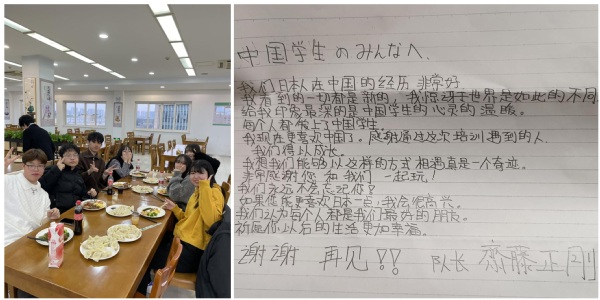 中国学生のみんなへ
我们日本人在中国的经历非常好
我看到的一切都是新的，我惊讶于世界是如此的不同
给我印象最深的是中国学生的心灵的温暖。
每个人都爱上中国学生。
我现在更喜欢中国了。感谢通过这次培训遇到的人，
我们得以成长。
我想我们能够以这样的方式相遇真是一个奇迹。
非常感谢您和我们一起玩！
我们永远不会忘记你？
如果您能更喜欢日本一点，我会很高兴。
我们认为每个人都是我们最好的朋友。
祈愿你以后的生活更加幸福。
谢谢 再见!! 队长 齋藤正剛